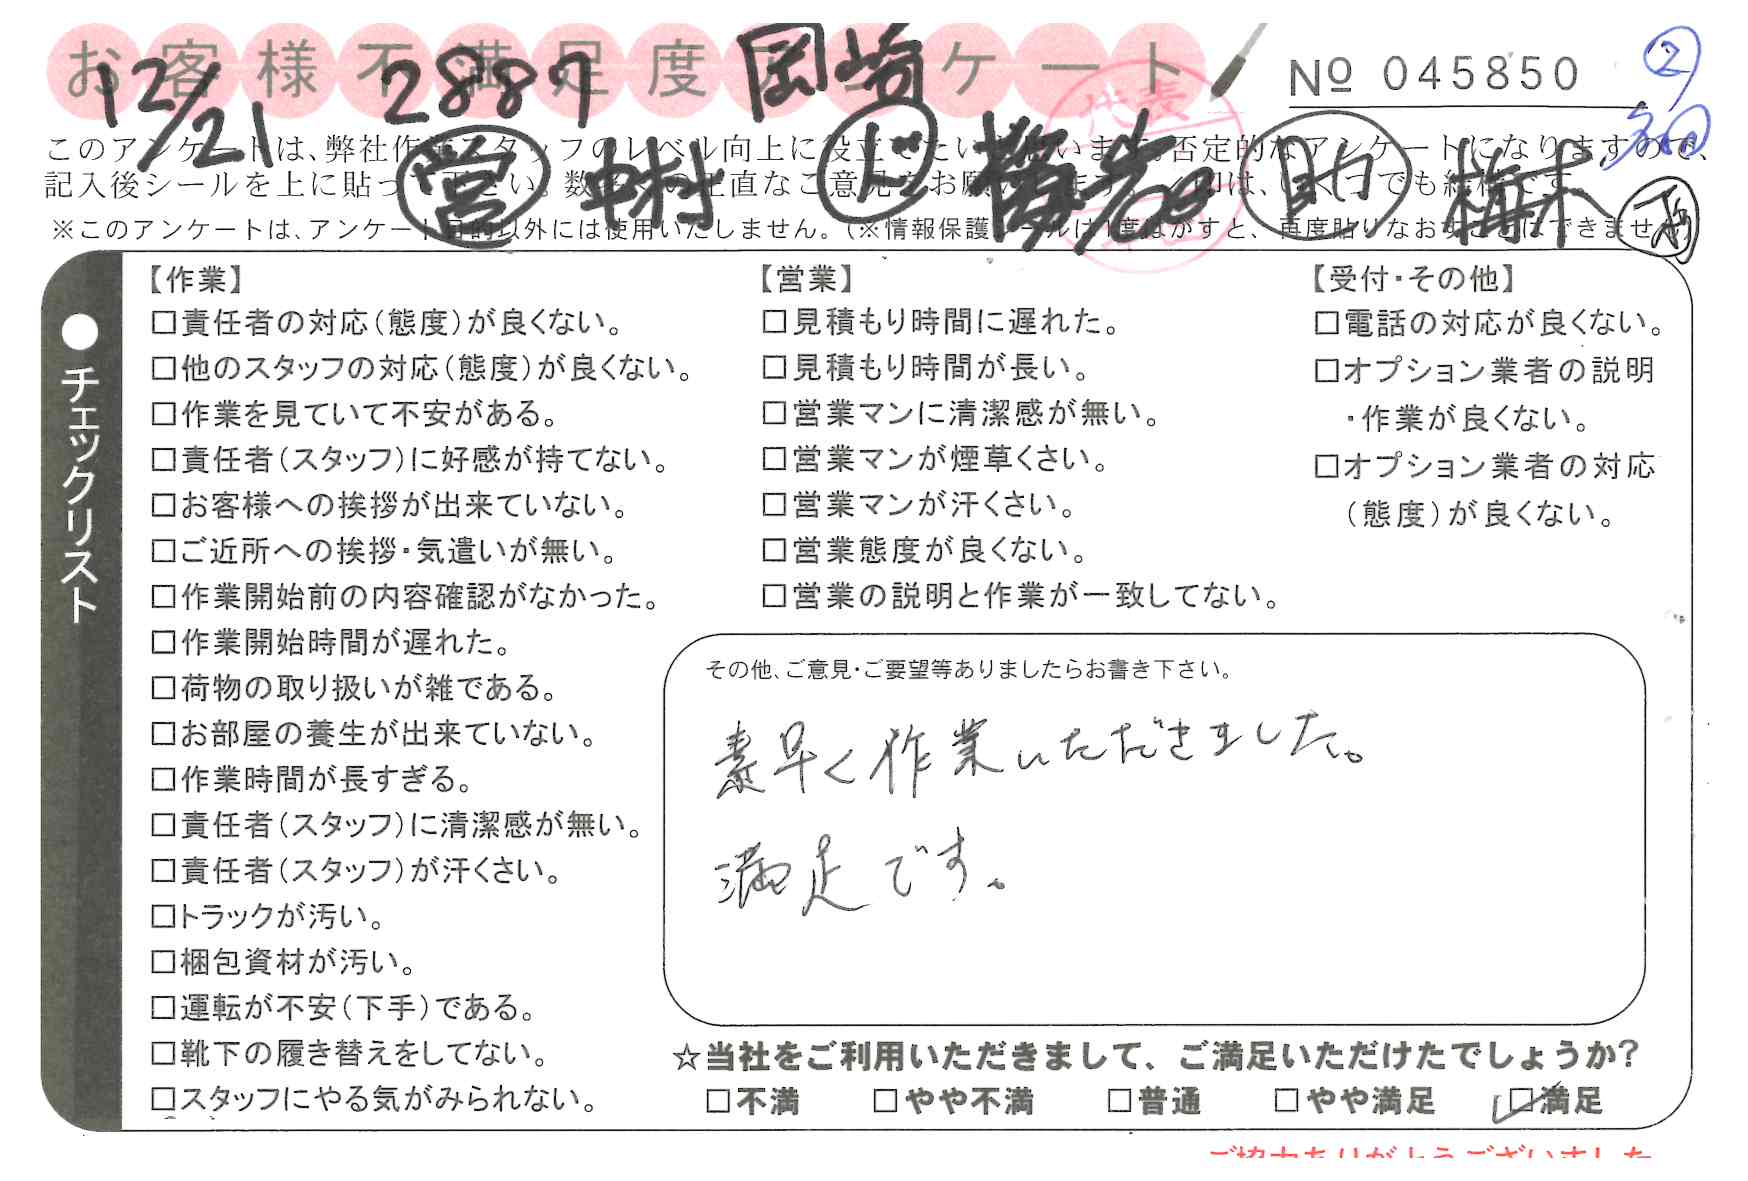 お客様不満足度アンケート! № 045850 ②
12/21 2887 岡崎
このアンケートは、弊社作業スタッフのレベル向上に役立てたいと思います。否定的なアンケートになりますので、
記入後シールを上に貼って下さい。数多くの正直なご意見をお願いします。
営 中村 ド 助 梅木
※このアンケートは、アンケート目的以外には使用いたしません。(※情報保護シールは1度はがすと、再度貼りなおすことはできません
●チェックリスト
【作業】
□責任者の対応(態度)が良くない。
□他のスタッフの対応(態度)が良くない。
□作業を見ていて不安がある。
□責任者(スタッフ)に好感が持てない。
□お客様への挨拶が出来ていない。
□ご近所への挨拶・気遣いが無い。
□作業開始前の内容確認がなかった。
□作業開始時間が遅れた。
□荷物の取り扱いが雑である。
□お部屋の養生が出来ていない。
□作業時間が長すぎる。
□責任者(スタッフ)に清潔感が無い。
□責任者(スタッフ)が汗くさい。
□トラックが汚い。
□梱包資材が汚い。
□運転が不安(下手)である。
□靴下の履き替えをしてない。
□スタッフにやる気がみられない。
【営業】
□見積もり時間に遅れた。
□見積もり時間が長い。
□営業マンに清潔感が無い。
□営業マンが煙草くさい。
□営業マンが汗くさい。
□営業態度が良くない。
□営業の説明と作業が一致してない。
【受付・その他】
□電話の対応が良くない。
□オプション業者の説明
・作業が良くない。
□オプション業者の対応
(態度)が良くない。
その他、ご意見・ご要望等ありましたらお書き下さい。
素早く作業いただきました。
満足です。
☆当社をご利用いただきまして、ご満足いただけたでしょうか?
□不満 □やや不満 □普通 □やや満足 □満足
ご協力ありがとうございました